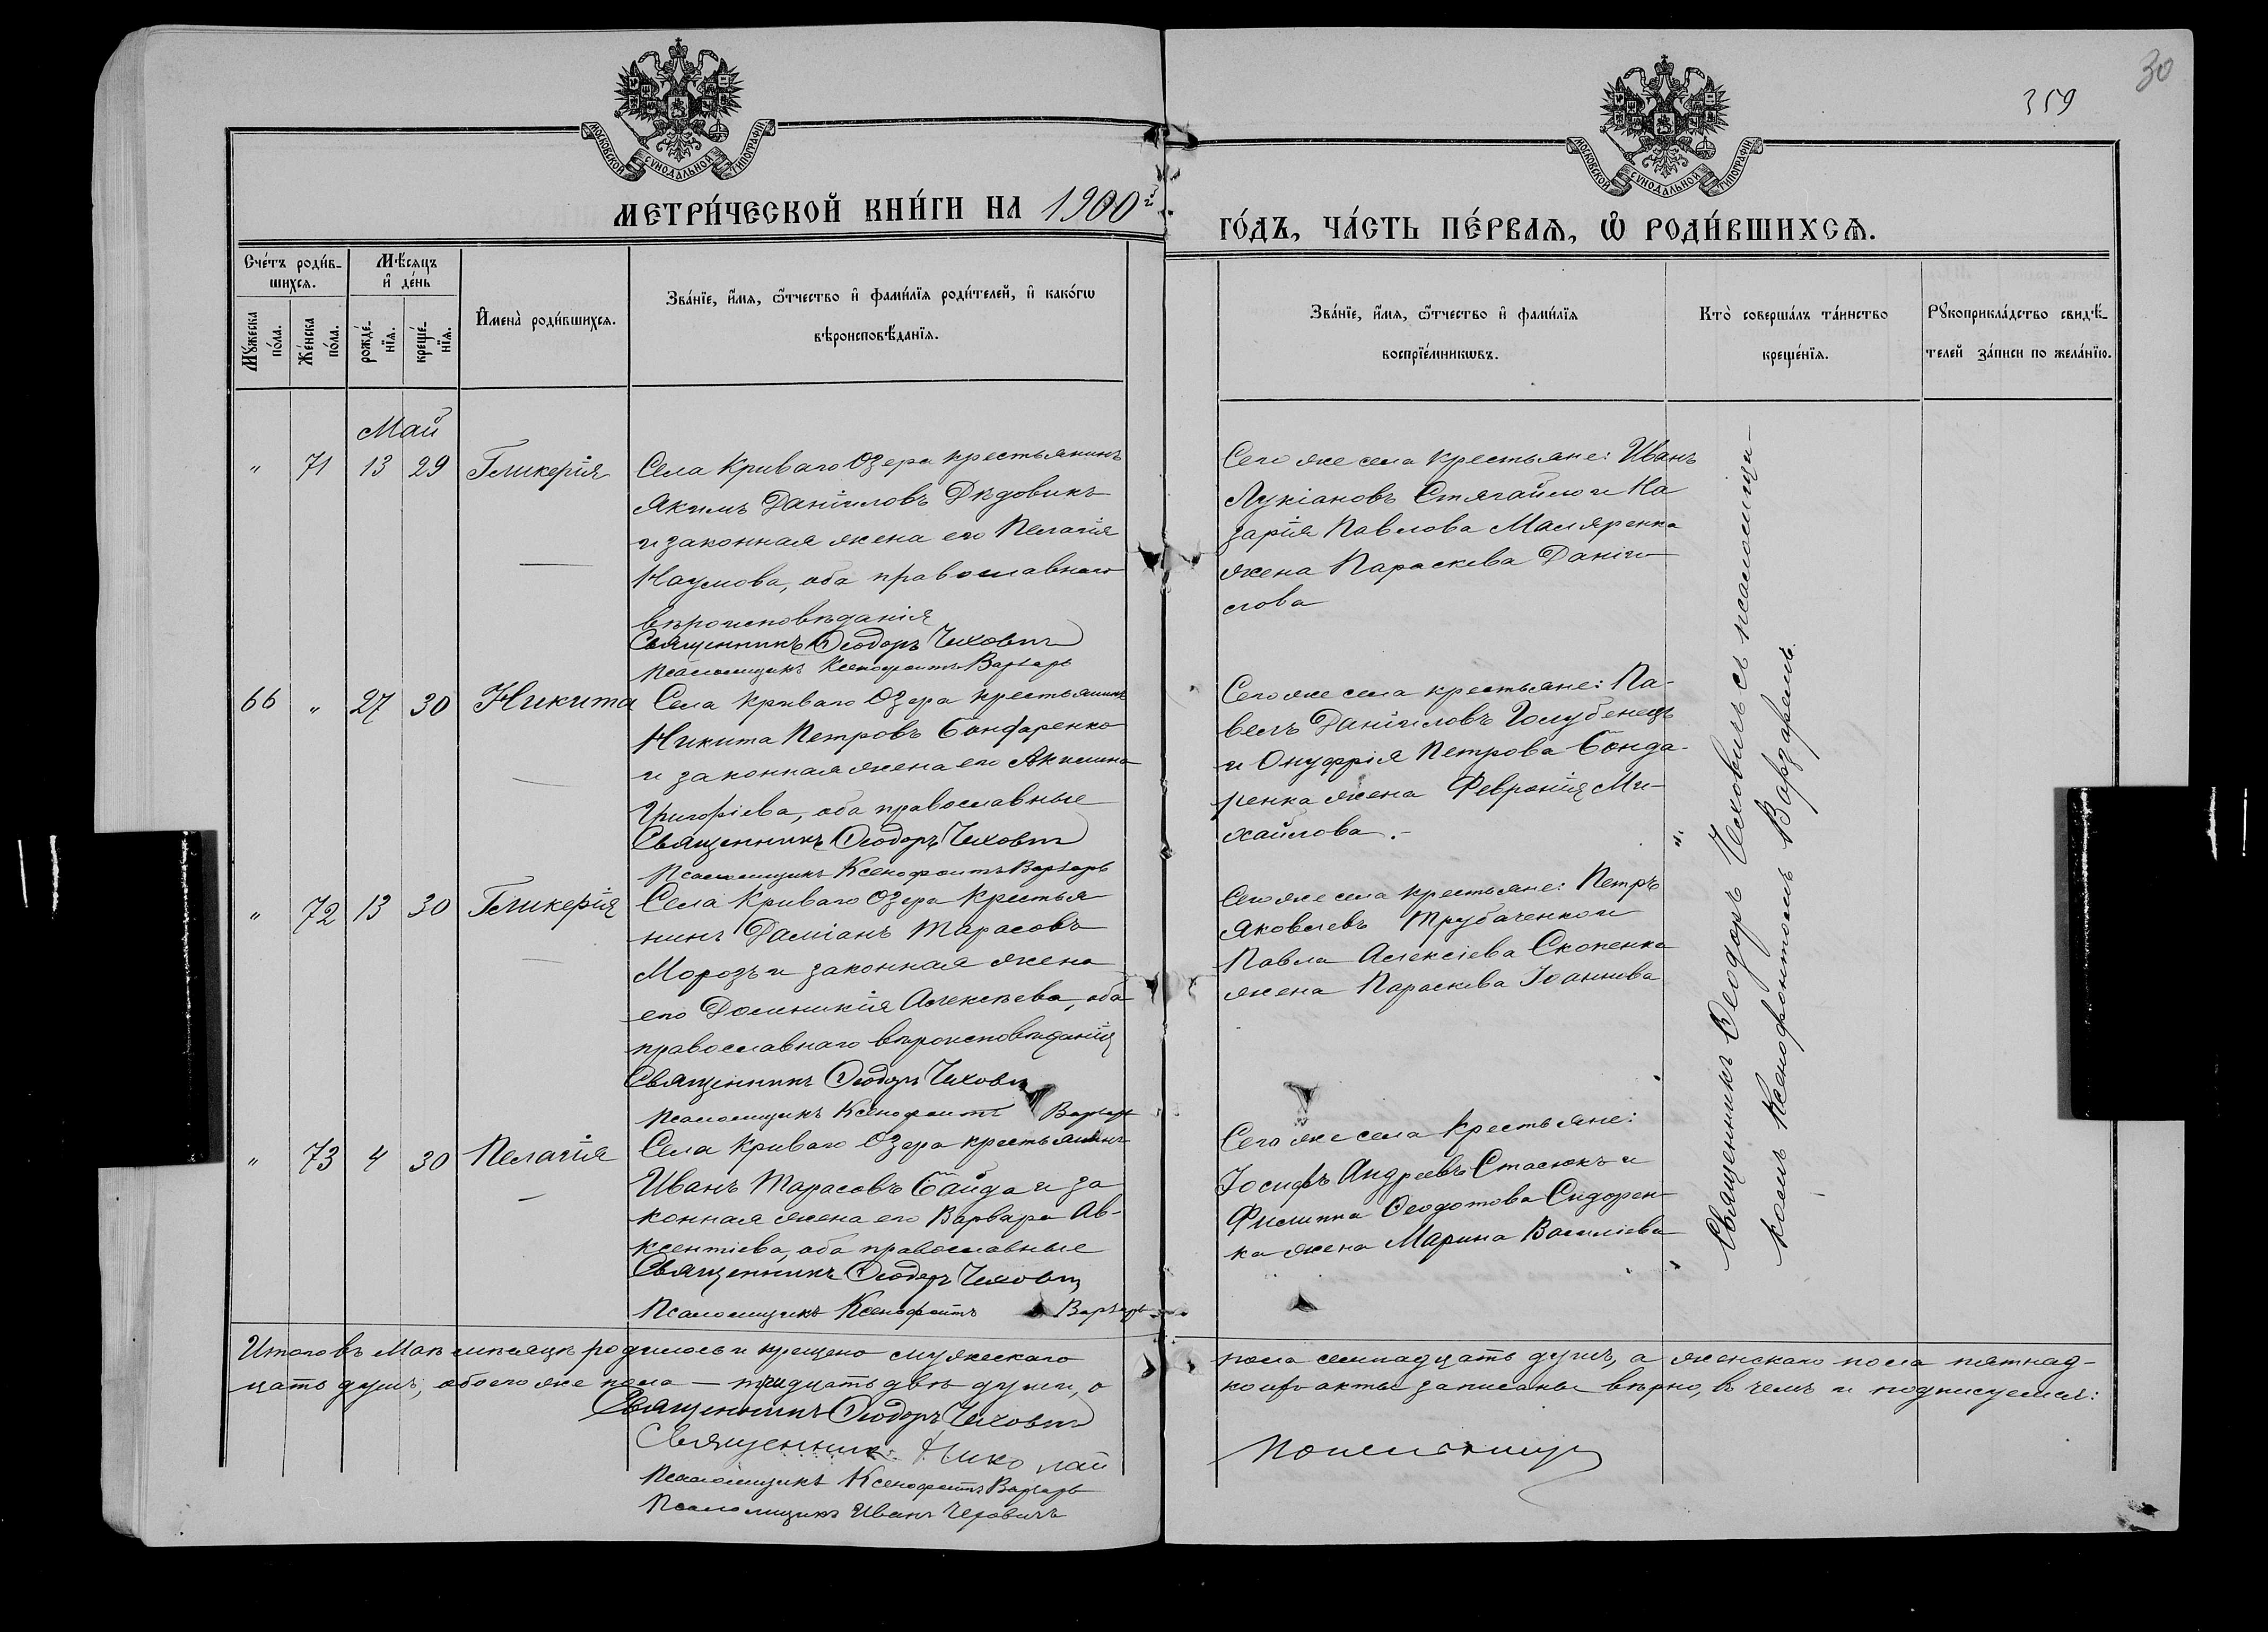 30
359
МОСКОВСКОЙ СѴНОДАЛЬНОЙ ТИПОГРАФІИ
МОСКОВСКОЙ СѴНОДАЛЬНОЙ ТИПОГРАФІИ
МЕТРИ́ЧЕСКОЙ КНИ́ГИ НА 1900й
ГО́ДЪ, ЧА́СТЬ ПЕ́РВАѦ, Ѡ҆ РОДИ́ВШИХСѦ.
Сче́тъ роди́в-
шихсѧ.
Му́жеска по́ла.
Же́нска по́ла.
Мѣ́сѧцъ
и҆ де́нь
рожде́-нїѧ.
креще́-нїѧ.
И҆мена̀ роди́вшихсѧ.
Зва́нїе, и҆́мѧ, ѻ҆́тчество и҆ фами́лїѧ роди́телей, и҆ како́гѡ
вѣроисповѣ́данїѧ.
Зва́нїе, и҆́мѧ, ѻ҆́тчество и҆ фами́лїѧ
воспрїе́мникѡвъ.
Кто̀ соверша́лъ та́инство
креще́нїѧ.
Рꙋкоприкла́дство свидѣ́-
телей за́писи по жела́нїю.
Май
" 71 13 29 Гликерія
Села Криваго Озера крестьянинъ
Якимъ Даніиловъ Дѣдовикъ
и законная жена его Пелагія
Наумова, оба православнаго
вѣроисповѣданія
Священникъ Ѳеодоръ Чеховичъ
Псаломщикъ Ксенофонтъ Варзарь
Сего же села крестьяне: Иванъ
Лукіановъ Стягайло и На
зарія Павлова Маляренка
жена Параскева Даніи-
лова
66 " 27 30 Никита
Села Криваго Озера крестьянинъ
Никита Петровъ Бондаренко
и законная жена его Акилина
Григоріева, оба православные
Священникъ Ѳеодоръ Чеховичъ
Псаломщикъ Ксенофонтъ Варзарь
Сего же села крестьяне: Па-
велъ Даніиловъ Голубенецъ
и Онуфрія Петрова Бонда-
ренка жена Февронія Ми-
хайлова.-
" 72 13 30 Гликерія
Села Криваго Озера крестья
нинъ Даміанъ Тарасовъ
Морозъ и законная жена
его Домникія Алексѣева, оба
православнаго вѣроисповѣданія
Священникъ Ѳеодоръ Чеховичъ
Псаломщикъ Ксенофонтъ Варзарь
Сего же села крестьяне: Петръ
Яковлевъ Трубаченко и
Павла Алексіева Скопенка
жена Параскева Іоаннова
" 73 4 30 Пелагія
Села Криваго Озера крестьянинъ
Иванъ Тарасовъ Байда и за
конная жена его Варвара Ав-
ксентіева, оба православные
Священникъ Ѳеодоръ Чеховичъ
Псаломщикъ Ксенофонтъ Варзарь
Сего же села крестьяне:
Іосифъ Андреевъ Стасюкъ и
Филиппа Ѳеодотова Сидорен-
ка жена Марина Василіева
Священникъ Ѳеодоръ Чеховичъ съ псаломщи-
комъ Ксенофонтомъ Варзаремъ.
Итого въ Маѣ мѣсяцѣ родилось и крещено мужескаго
пола семнадцать душъ, а женскаго пола пятнад-
цать душъ, обоего же пола — тридцать двѣ души, о
коихъ акты записаны вѣрно, въ чемъ и подписуемся:
Священникъ Ѳеодоръ Чеховичъ
Священникъ Николай
Псаломщикъ Ксенофонтъ Варзарь
Псаломщикъ Иванъ Чеховичъ